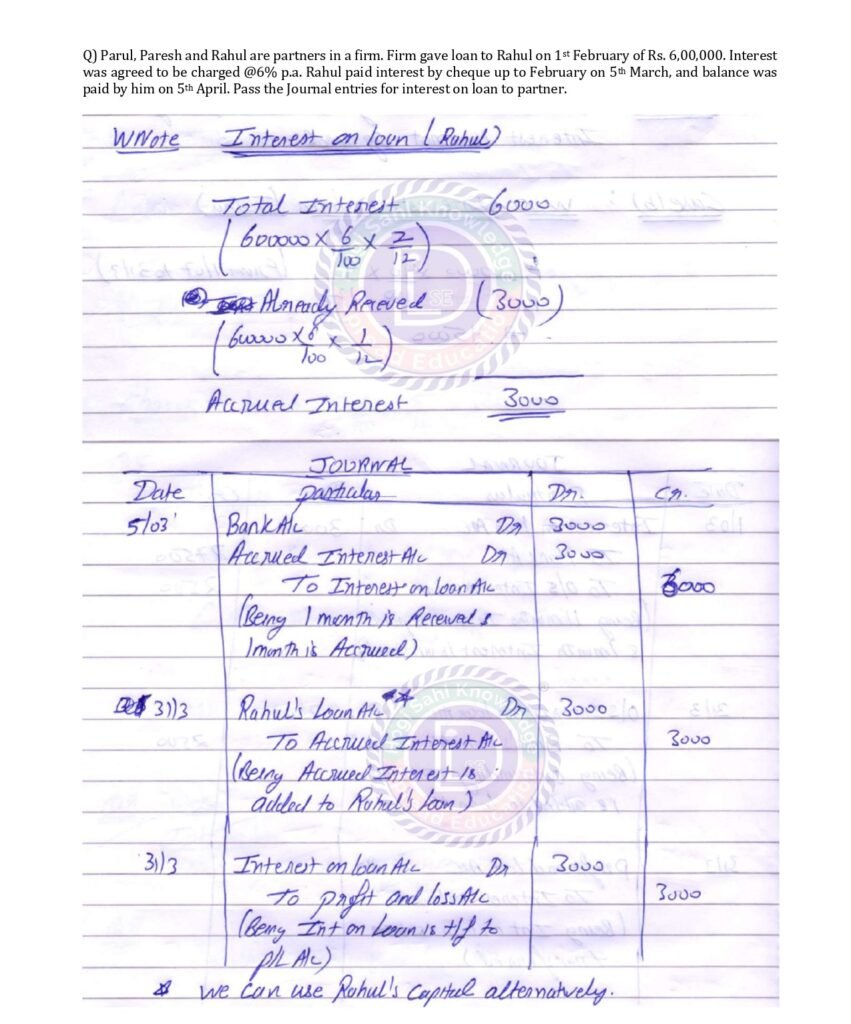 Q) Parul, Paresh and Rahul are partners in a firm. Firm gave loan to Rahul on 1st February of Rs. 6,00,000. Interest
was agreed to be charged @6% p.a. Rahul paid interest by cheque up to February on 5th March, and balance was
paid by him on 5th April. Pass the Journal entries for interest on loan to partner.
WNote Interest on loan (Rahul)
Total Interest 6000
(600000 X 6/100 X 2/12)
Already Receved (3000)
(600000 X 6/100 X 1/12)
Accrued Interest 3000
JOURNAL
Date Particular Dr. Cr.
5/03 Bank A/c Dr 3000
Accrued Interest A/c Dr 3000
To Interest on loan A/c 6000
(Being 1 month is Received &
1 month is Accrued)
31/3 Rahul's Loan A/c * Dr 3000
To Accrued Interest A/c 3000
(Being Accrued Interest is
added to Rahul's loan)
31/3 Interest on loan A/c Dr 3000
To profit and loss A/c 3000
(Being Int on Loan is t/f to
P/L A/c)
* we can use Rahul's Capital alternatively.